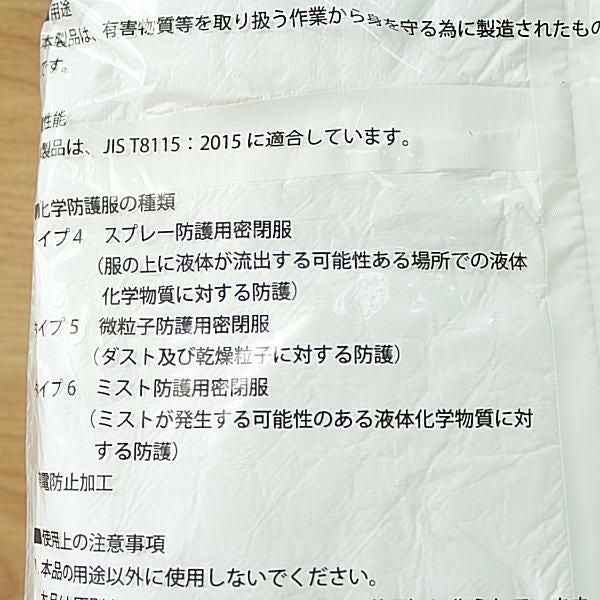 用途
本製品は、有害物質等を取り扱う作業から身を守る為に製造されたもの
です。
性能
製品は、JIS T8115：2015 に適合しています。
化学防護服の種類
イプ 4　スプレー防護用密閉服
（服の上に液体が流出する可能性ある場所での液体
化学物質に対する防護）
タイプ 5　微粒子防護用密閉服
（ダスト及び乾燥粒子に対する防護）
タイプ 6　ミスト防護用密閉服
（ミストが発生する可能性のある液体化学物質に対
する防護）
電防止加工
■使用上の注意事項
1.本品の用途以外に使用しないでください。